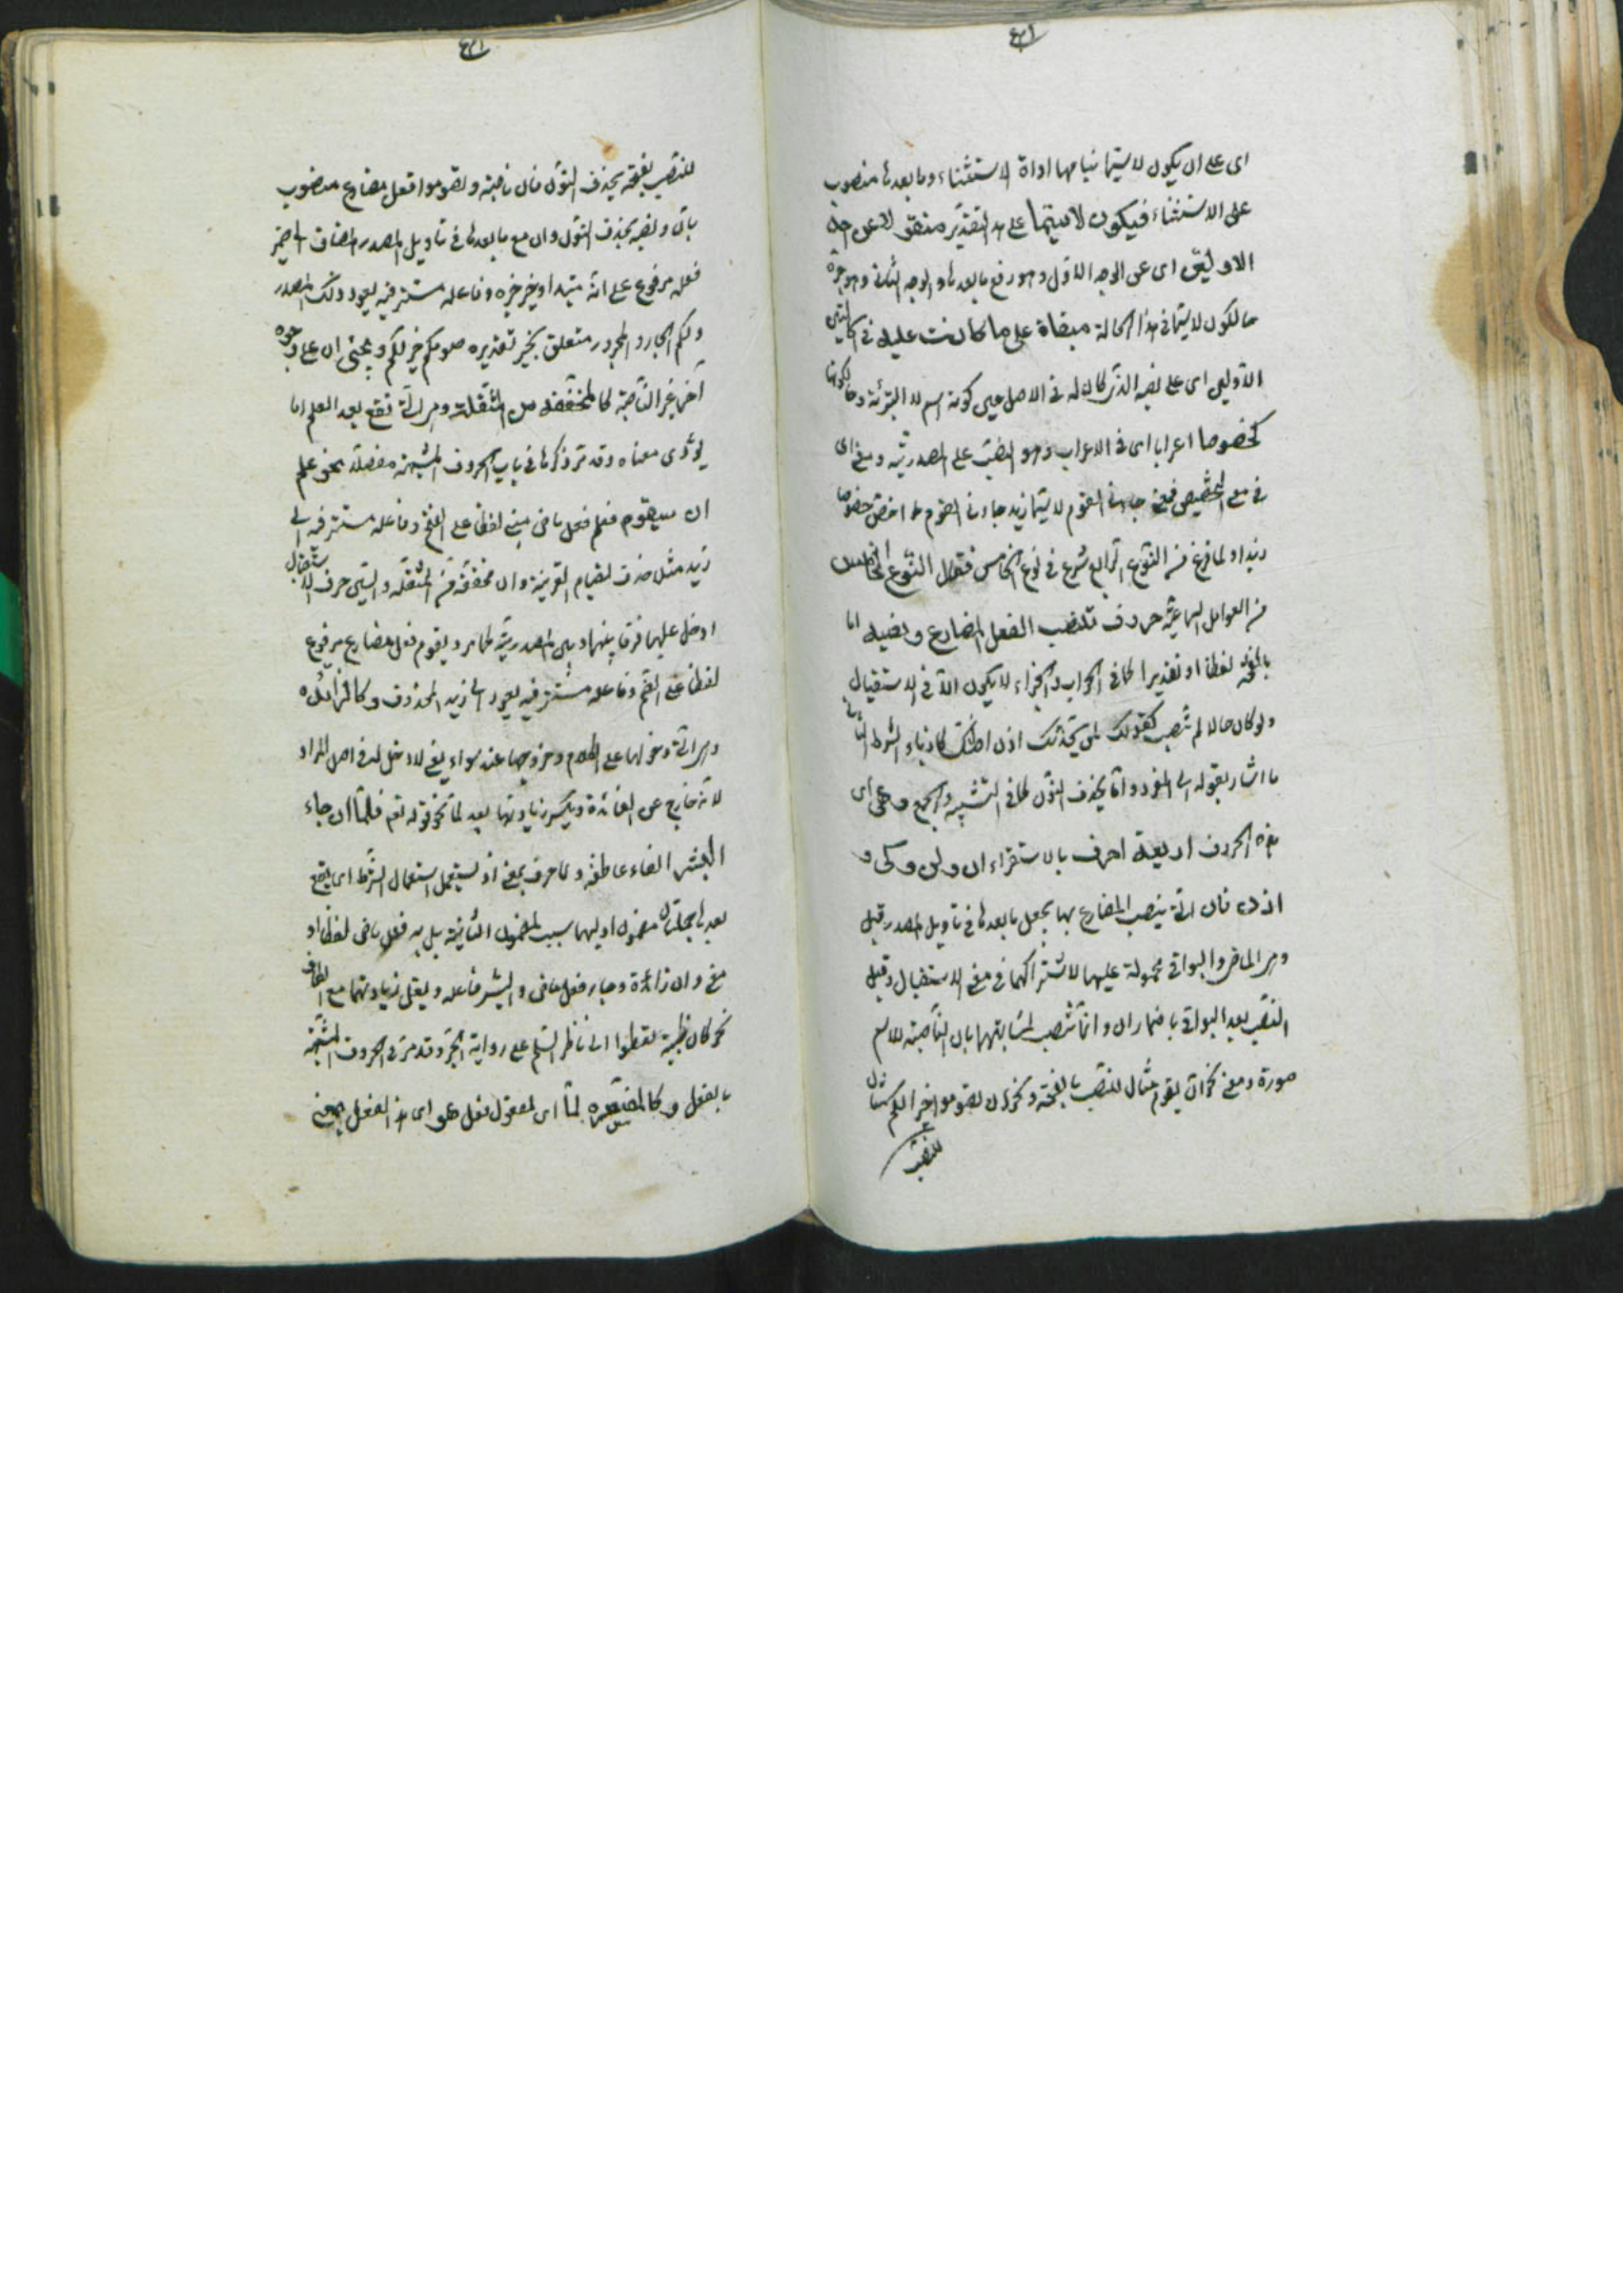 اى على ان يكون لاسيّما بتمامها اداة الاستثناء وما بعدها منصوب
على الاستثناء فيكون لاسيّما على هذا التقدير منقولا عن
الاوليين اى عن الوجه الاول وهو رفع ما بعدها والوجه الثانى وهو جرّه
حال كون لاسيّما فى هذا الحالة مبقاة على ما كانت عليه فى الحالتين
الاوليين اى على نصبه الذى كان له فى الاصل حين كونه اسم لا التبرئة
كخصوصا اعرابا اى فى الاعراب وهو النصب على المصدريّة ومعنى اى
فى معنى التخصيص فمعنى جاءنى القوم لاسيّما زيد جاءنى القوم اخصّ خصوصا
زيدا ولمّا فرغ من النّوع الرّابع شرع فى نوع الخامس فقال النّوع الخامس
من العوامل السماعيّة حروف تنصب الفعل المضارع ونصبه امّا
بالفتحة لفظا او تقديرا كما فى الجواب والجزاء لا يكون الّا فى الاستقبال
ولو كان حالا لم تنصب كقولك لمن يحدّثك اذن اظنّك كاذبا
ما اشار بقوله الى المفرد وامّا بحذف النّون كما فى التّثنية والجمع وهى اى
هذه الحروف اربعة احرف بالاستقراء ان ولن وكى و
اذن فان الّتى ينصب المضارع بها يجعل ما بعدها فى تأويل المصدر قيل
والبواقى محمولة عليها لاشتراكهما فى معنى الاستقبال وقيل
النّصب بعد البواقى باضمار ان وانّما تنصب لمشابهتها بان النّاصبة
صورة ومعنى نحو ان يقوم مثال للنّصب بالفتحة ونحو ان تصوموا خير لكم مثال
للنّصب
للنّصب بحذف النّون فان ناصبة وتصوموا فعل مضارع منصوب
بان ونصبه بحذف النّون وان مع ما بعدها فى تأويل المصدر المضاف الى ضمير
فعله مرفوع على انّه مبتدا وخير خبره وفاعله مستتر فيه يعود ذلك المصدر
ولكم الجار والمجرور متعلّق بخير تقديره صومكم خير لكم ويجئ ان على وجوه
اخر غير النّاصبة كالمخفّفة من المثقّلة وهى الّتى تقع بعد العلم او ما
يؤدّى معناه وقد مرّ ذكرها فى باب الحروف المشبهة مفصّلا نحو علم
ان سيقوم فعلم فعل ماض مبنى لفظا على الفتح وفاعله مستتر فيه الى
زيد مثلا حذف لقيام القرينة وان مخفّفة من المثقّلة والسّين حرف الاستقبال
ادخل عليها فرقا بينها وبين المصدريّة كما مر ويقوم فعل مضارع مرفوع
لفظا على الضّم وفاعله مستتر فيه يعود الى زيد المحذوف وكالزائدة
وهى الّتى دخولها على الكلام وخروجها عنه سواء يعنى لا دخل له فى اصل المراد
لانّه خارج عن الفائدة ويكثر زيادتها بعد لمّا نحو قوله تعالى فلمّا ان جاء
البشير الفاء عاطفة ولمّا حرف بمعنى اذ يستعمل استعمال الشّرط اى يقع
بعدها جملتان مضمون اوليهما سبب لمضمون الثانية يليه فعل ماض لفظا او
معنى وان زائدة وجاء فعل ماض والبشير فاعله ويقلّ زيادتها مع الكاف
نحو كان ظبية تعطوا الى ناظر السّلم على رواية الجرّ وقد مرّ فى الحروف المشبّهة
بالفعل وكالمفسّرة لمّا اى لمفعول فعل هو اى هذا الفعل بمعنى